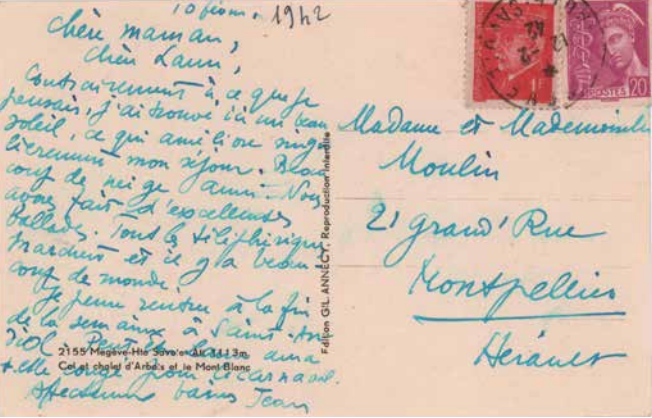 10 février. 1942
Chère maman,
Chère Laure,
Contrairement à ce que je
pensais, j'ai trouvé ici un beau
soleil, ce qui améliore singu
lièrement mon séjour. Beau
coup de neige aussi. Nous
avons fait d'excellentes
ballades. Tous les téléphériques
marchent et il y a beau
coup de monde.
Je pense rentrer à la fin
de la semaine à Saint-An
diol. Peut-être Laure aura
t-elle congé pour le carnaval.
Affectueux baisers Jean
2155 Megève-Hte Savoie Alt. 1113m
Col et chalet d'Arbois et le Mont Blanc
Edition GIL ANNECY, Reproduction Interdite
POSTES 20
Madame et Mademoiselle
Moulin
21 Grand'Rue
Montpellier
Hérault